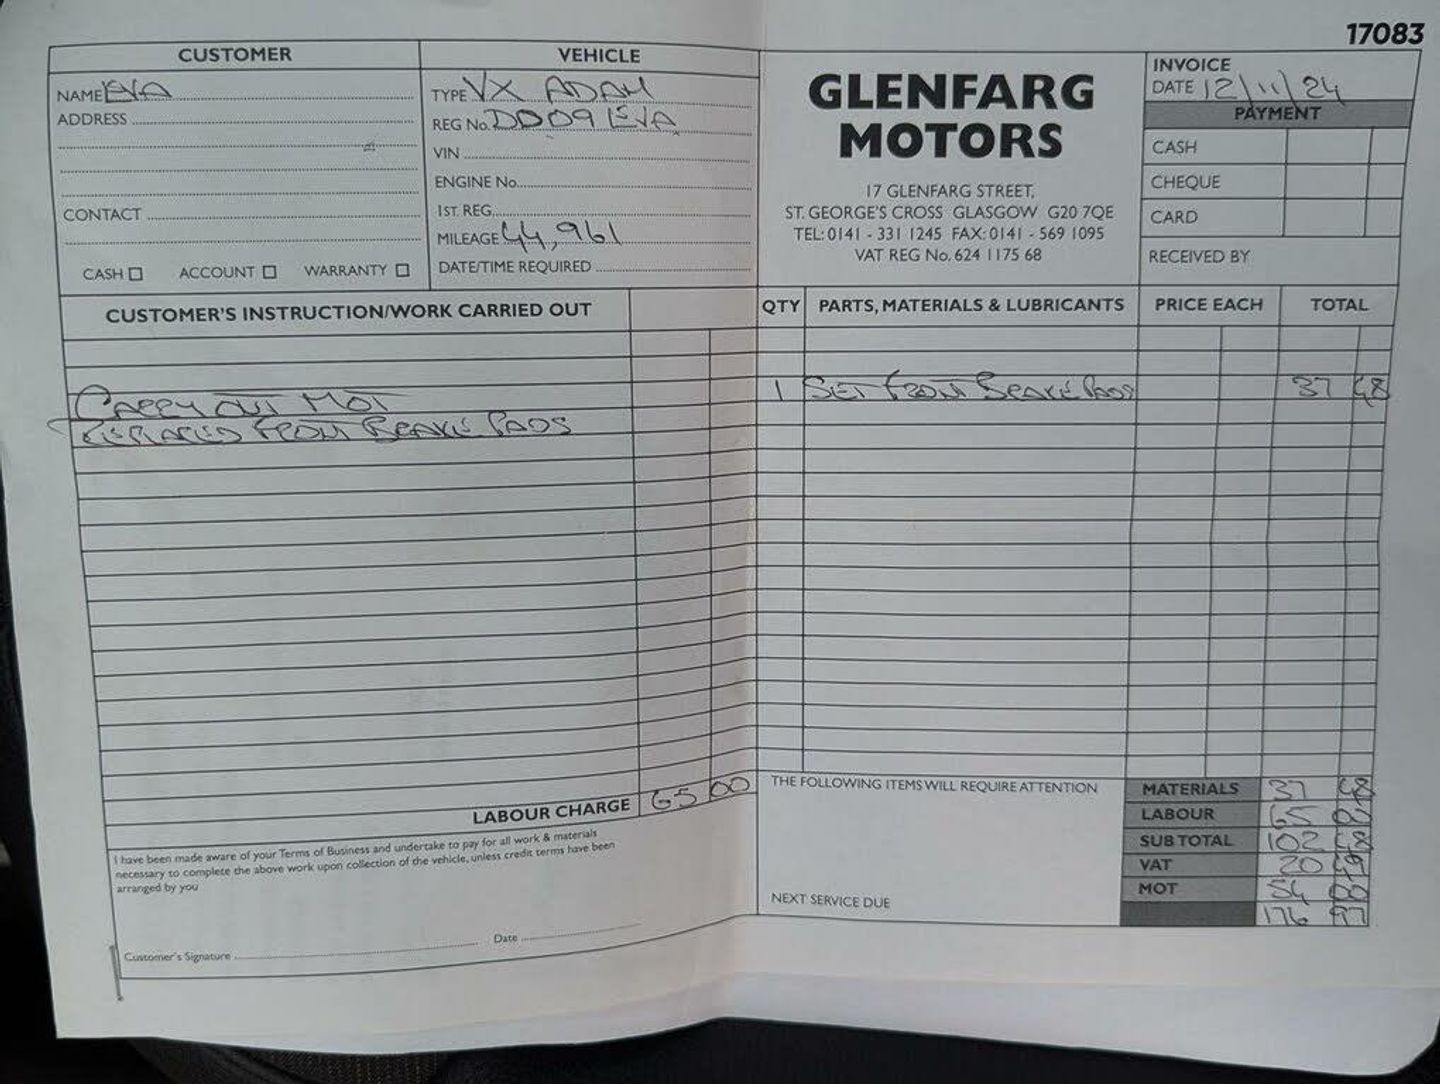 17083
CUSTOMER
NAME EVA
ADDRESS
CONTACT
CASH ACCOUNT WARRANTY
VEHICLE
TYPE VX ADAM
REG No. DD09 EVA
VIN
ENGINE No.
1ST. REG.
MILEAGE 44,961
DATE/TIME REQUIRED
GLENFARG
MOTORS
17 GLENFARG STREET,
ST. GEORGE'S CROSS GLASGOW G20 7QE
TEL: 0141 - 331 1245 FAX: 0141 - 569 1095
VAT REG No. 624 1175 68
INVOICE
DATE 12/11/24
PAYMENT
CASH
CHEQUE
CARD
RECEIVED BY
CUSTOMER'S INSTRUCTION/WORK CARRIED OUT
CARRY OUT MOT
REPLACED FRONT BRAKE PADS
LABOUR CHARGE 65 00
I have been made aware of your Terms of Business and undertake to pay for all work & materials
necessary to complete the above work upon collection of the vehicle, unless credit terms have been
arranged by you
Customer's Signature Date
QTY PARTS, MATERIALS & LUBRICANTS PRICE EACH TOTAL
1 SET FRONT BRAKE PADS 37 48
THE FOLLOWING ITEMS WILL REQUIRE ATTENTION
NEXT SERVICE DUE
MATERIALS 37 48
LABOUR 65 00
SUB TOTAL 102 48
VAT 20 49
MOT 54 00
176 97